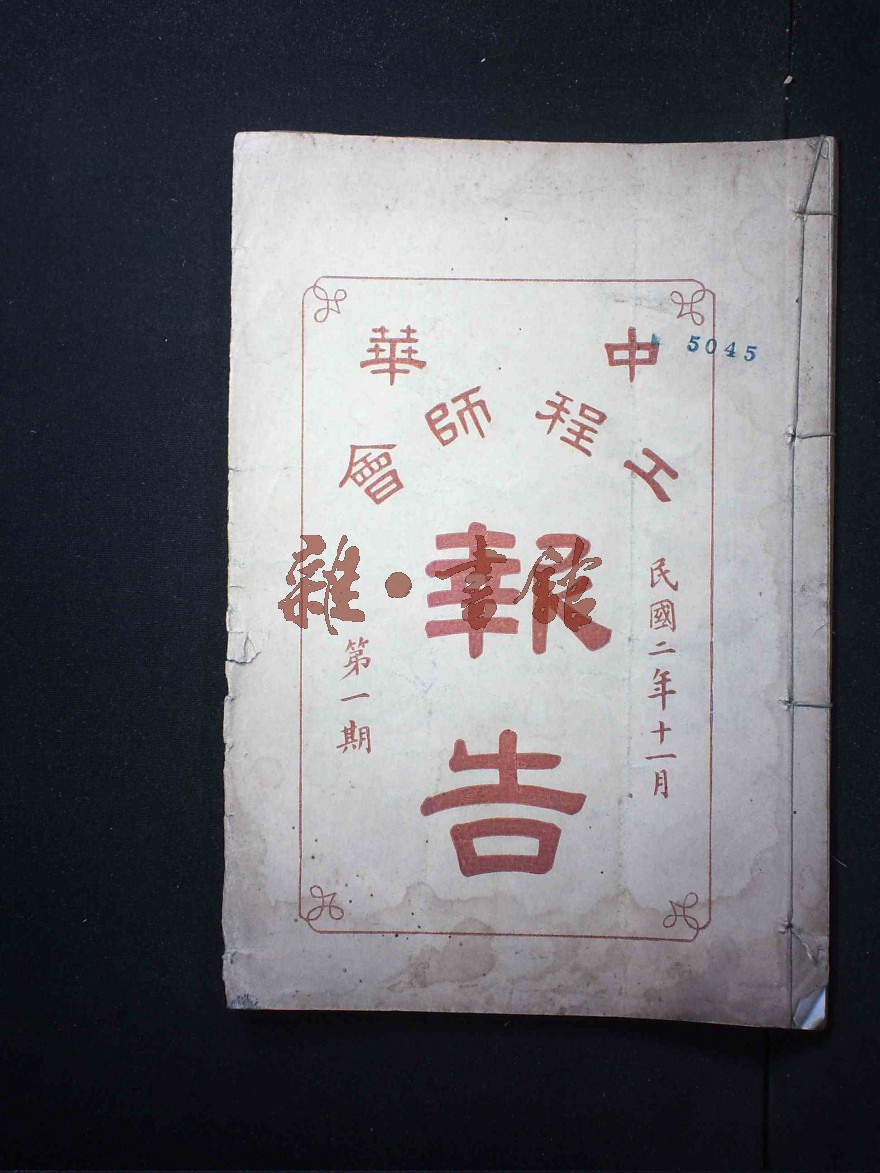 中華
工程師會
報告
民國二年十一月
第一期
5045
雜·書館